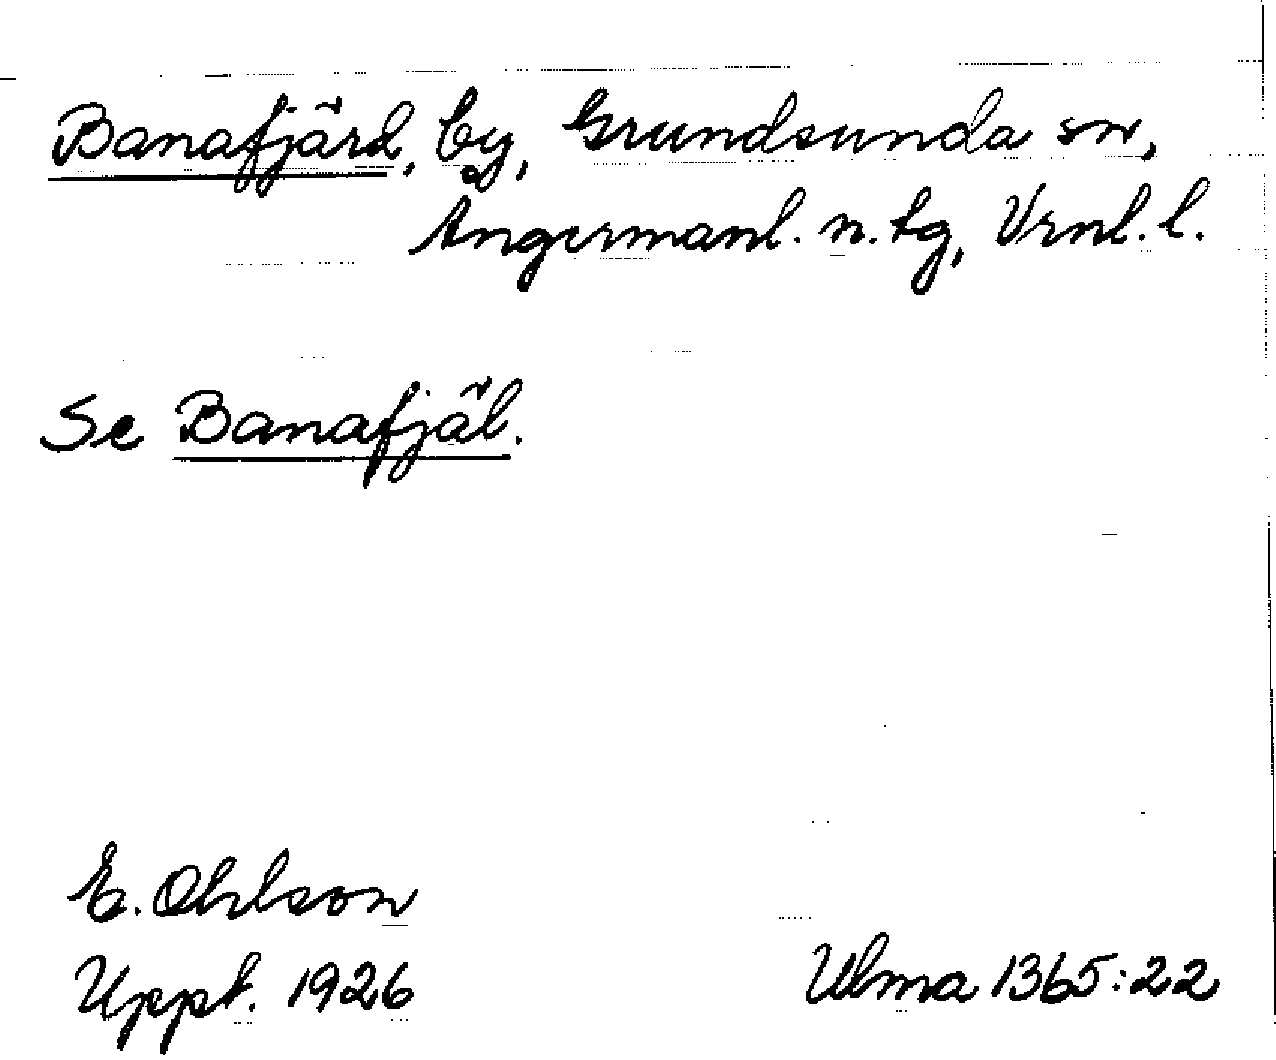 Banafjärd, by, Grundsunda sn,
Ångermanl. n. tg, Vrnl. l.
Se Banafjäl.
E. Ohlson
Uppt. 1926
Ulma 1365:22